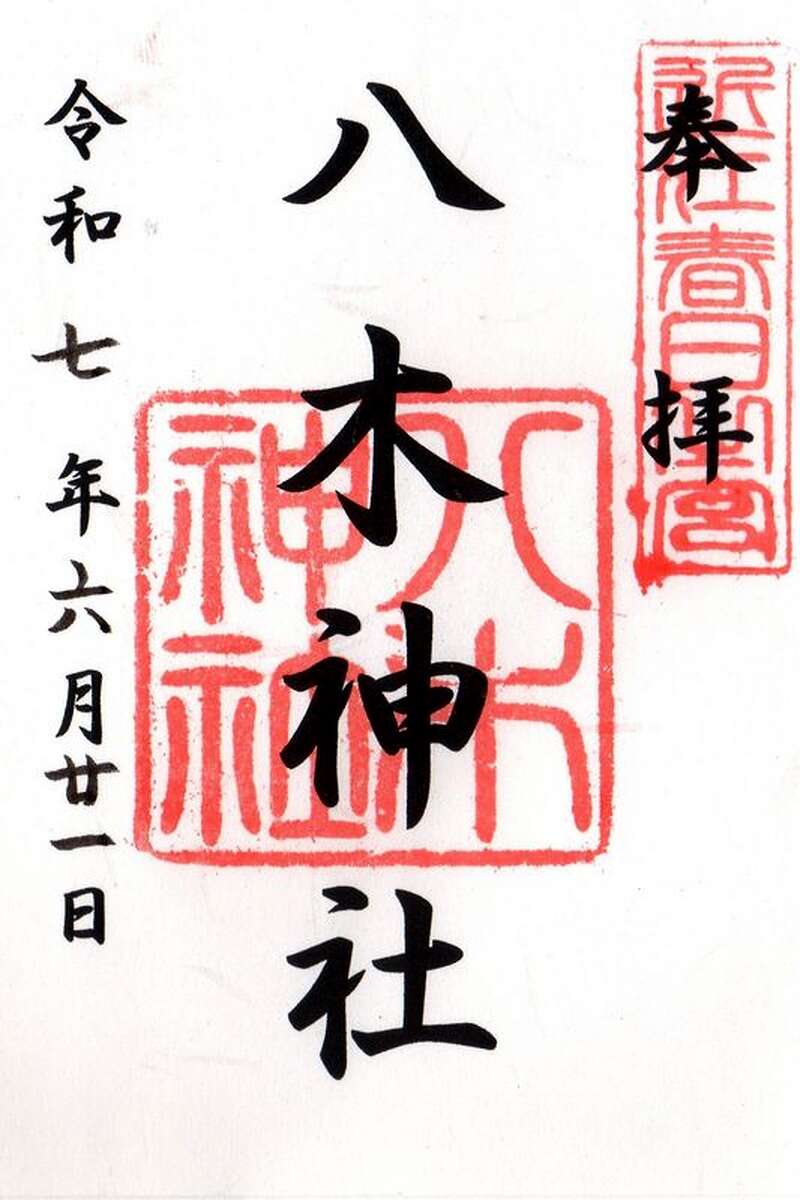 奉拝
近江春日宮
八木神社
八木神社
令和七年六月廿一日